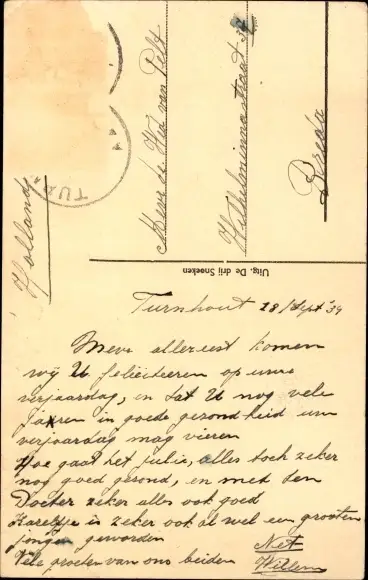 Mevr de Wed van Pelt
Wilhelminastraat 37
Breda
Holland
TUR
Uitg. De drij Snoeken
Turnhout 28/Sept '39
Mevr allereerst komen
wij U feliciteeren op uwe
verjaardag, en dat U nog vele
jaren in goede gezondheid uw
verjaardag mag vieren
Hoe gaat het julie, alles toch zeker
nog goed gezond, en met den
Docter zeker alles ook goed
Kareltje is zeker ook al wel een grooten
jongen geworden
Vele groeten van ons beiden
Net
Willem